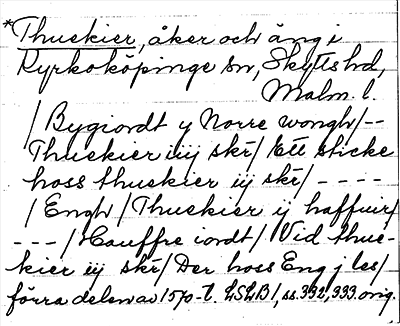 *Thuekier, åker och äng i
Kyrkoköpinge sn, Skytts hd,
Malm. l.
/Bygiordt y Norre wongh/--
Thuekier iiij skr/Ett sticke
hoss thuekier iij skr/----
/Engh/Thuekier ij haffuir/
---/Hauffre iordt/Vid thue-
kier iij skr/Der hoss Eng j les/
förra delen av 1570-t. LSLB1, ss. 332, 333 orig.